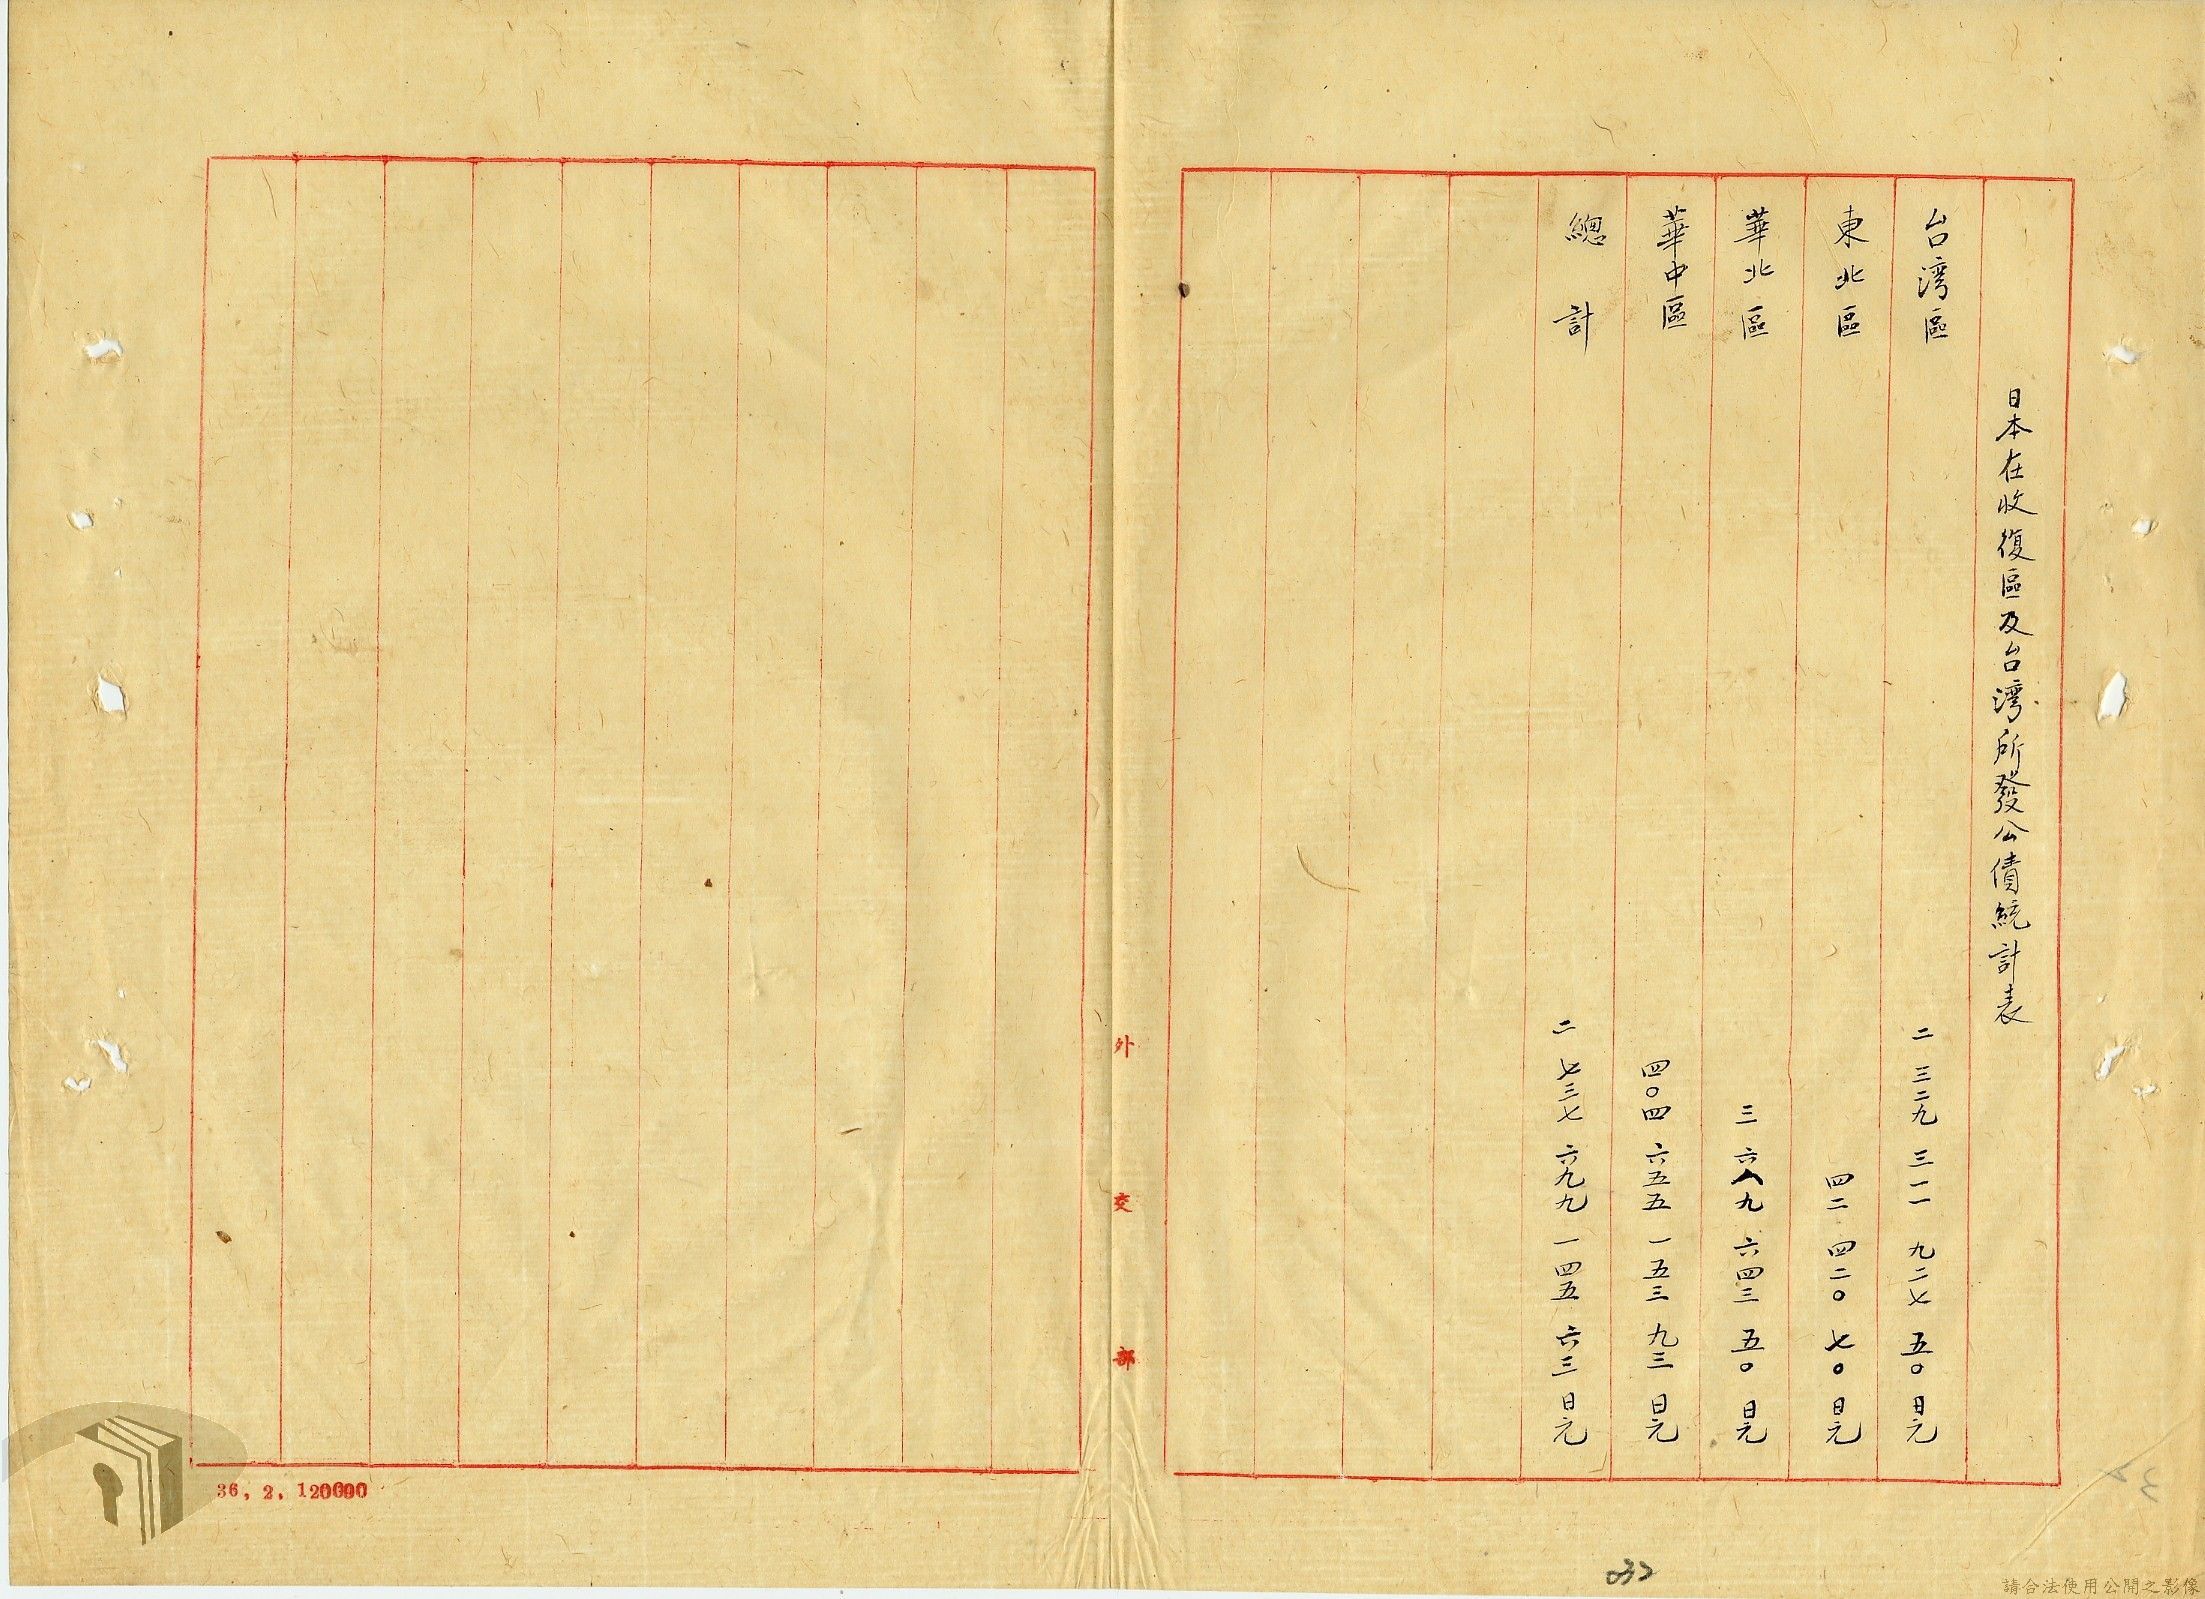 日本在收復區及台湾所發公債統計表
台湾區 二 三二九 三一一 九二七 五〇 日元
東北區 四二 四二〇 七〇 日元
華北區 三 六八九 六四三 五〇 日元
華中區 四〇四 六五五 一五三 九三 日元
總計 二 七三七 六九九 一四五 六三 日元
外交部
36, 2, 120000
032
請合法使用公開之影像